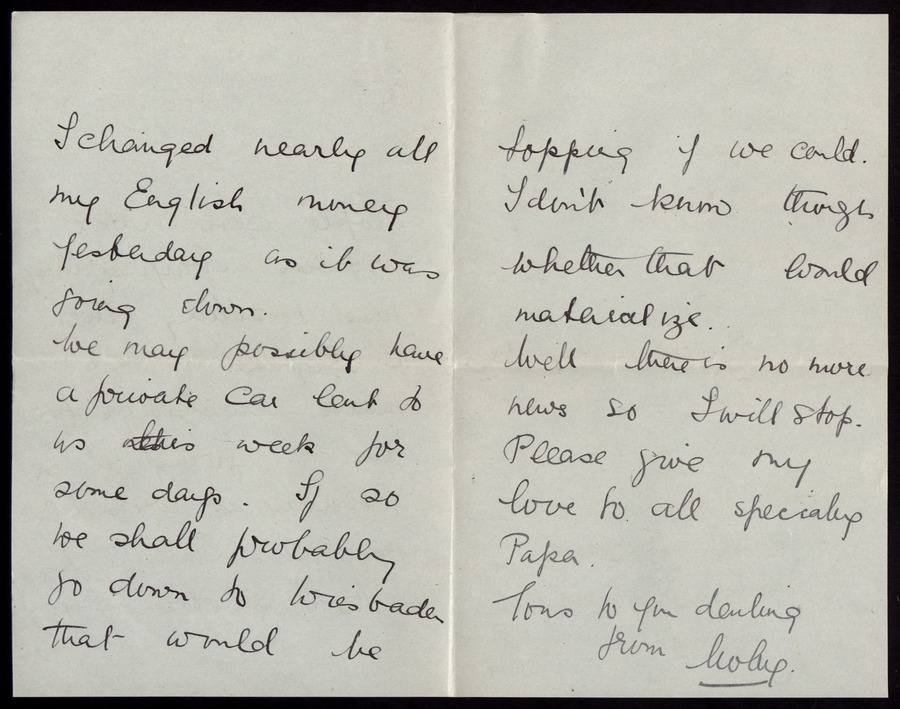 I changed nearly all
my English money
yesterday as it was
going down.
We may possibly have
a private car lent to
us this week for
some days. If so
we shall probably
go down to Wiesbaden
that would be
topping if we could.
I don't know though
whether that would
materialize.
Well there is no more
news so I will stop.
Please give my
love to all specially
Papa.
Tons to you darling
from